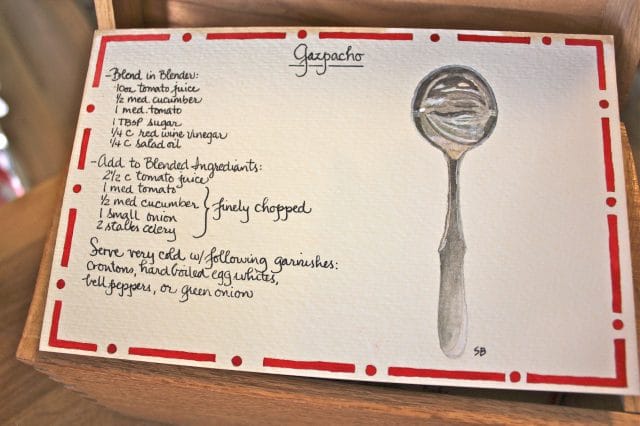 Gazpacho
- Blend in Blender:
10oz tomato juice
½ med cucumber
1 med. tomato
1 TBSP sugar
¼ c red wine vinegar
¼ c salad oil
- Add to Blended Ingrediants:
2½ c tomato juice
1 med tomato
½ med cucumber
1 small onion
2 stalks celery
} finely chopped
Serve very cold w/ following garnishes:
croutons, hard boiled egg whites,
bell peppers, or green onion
SB